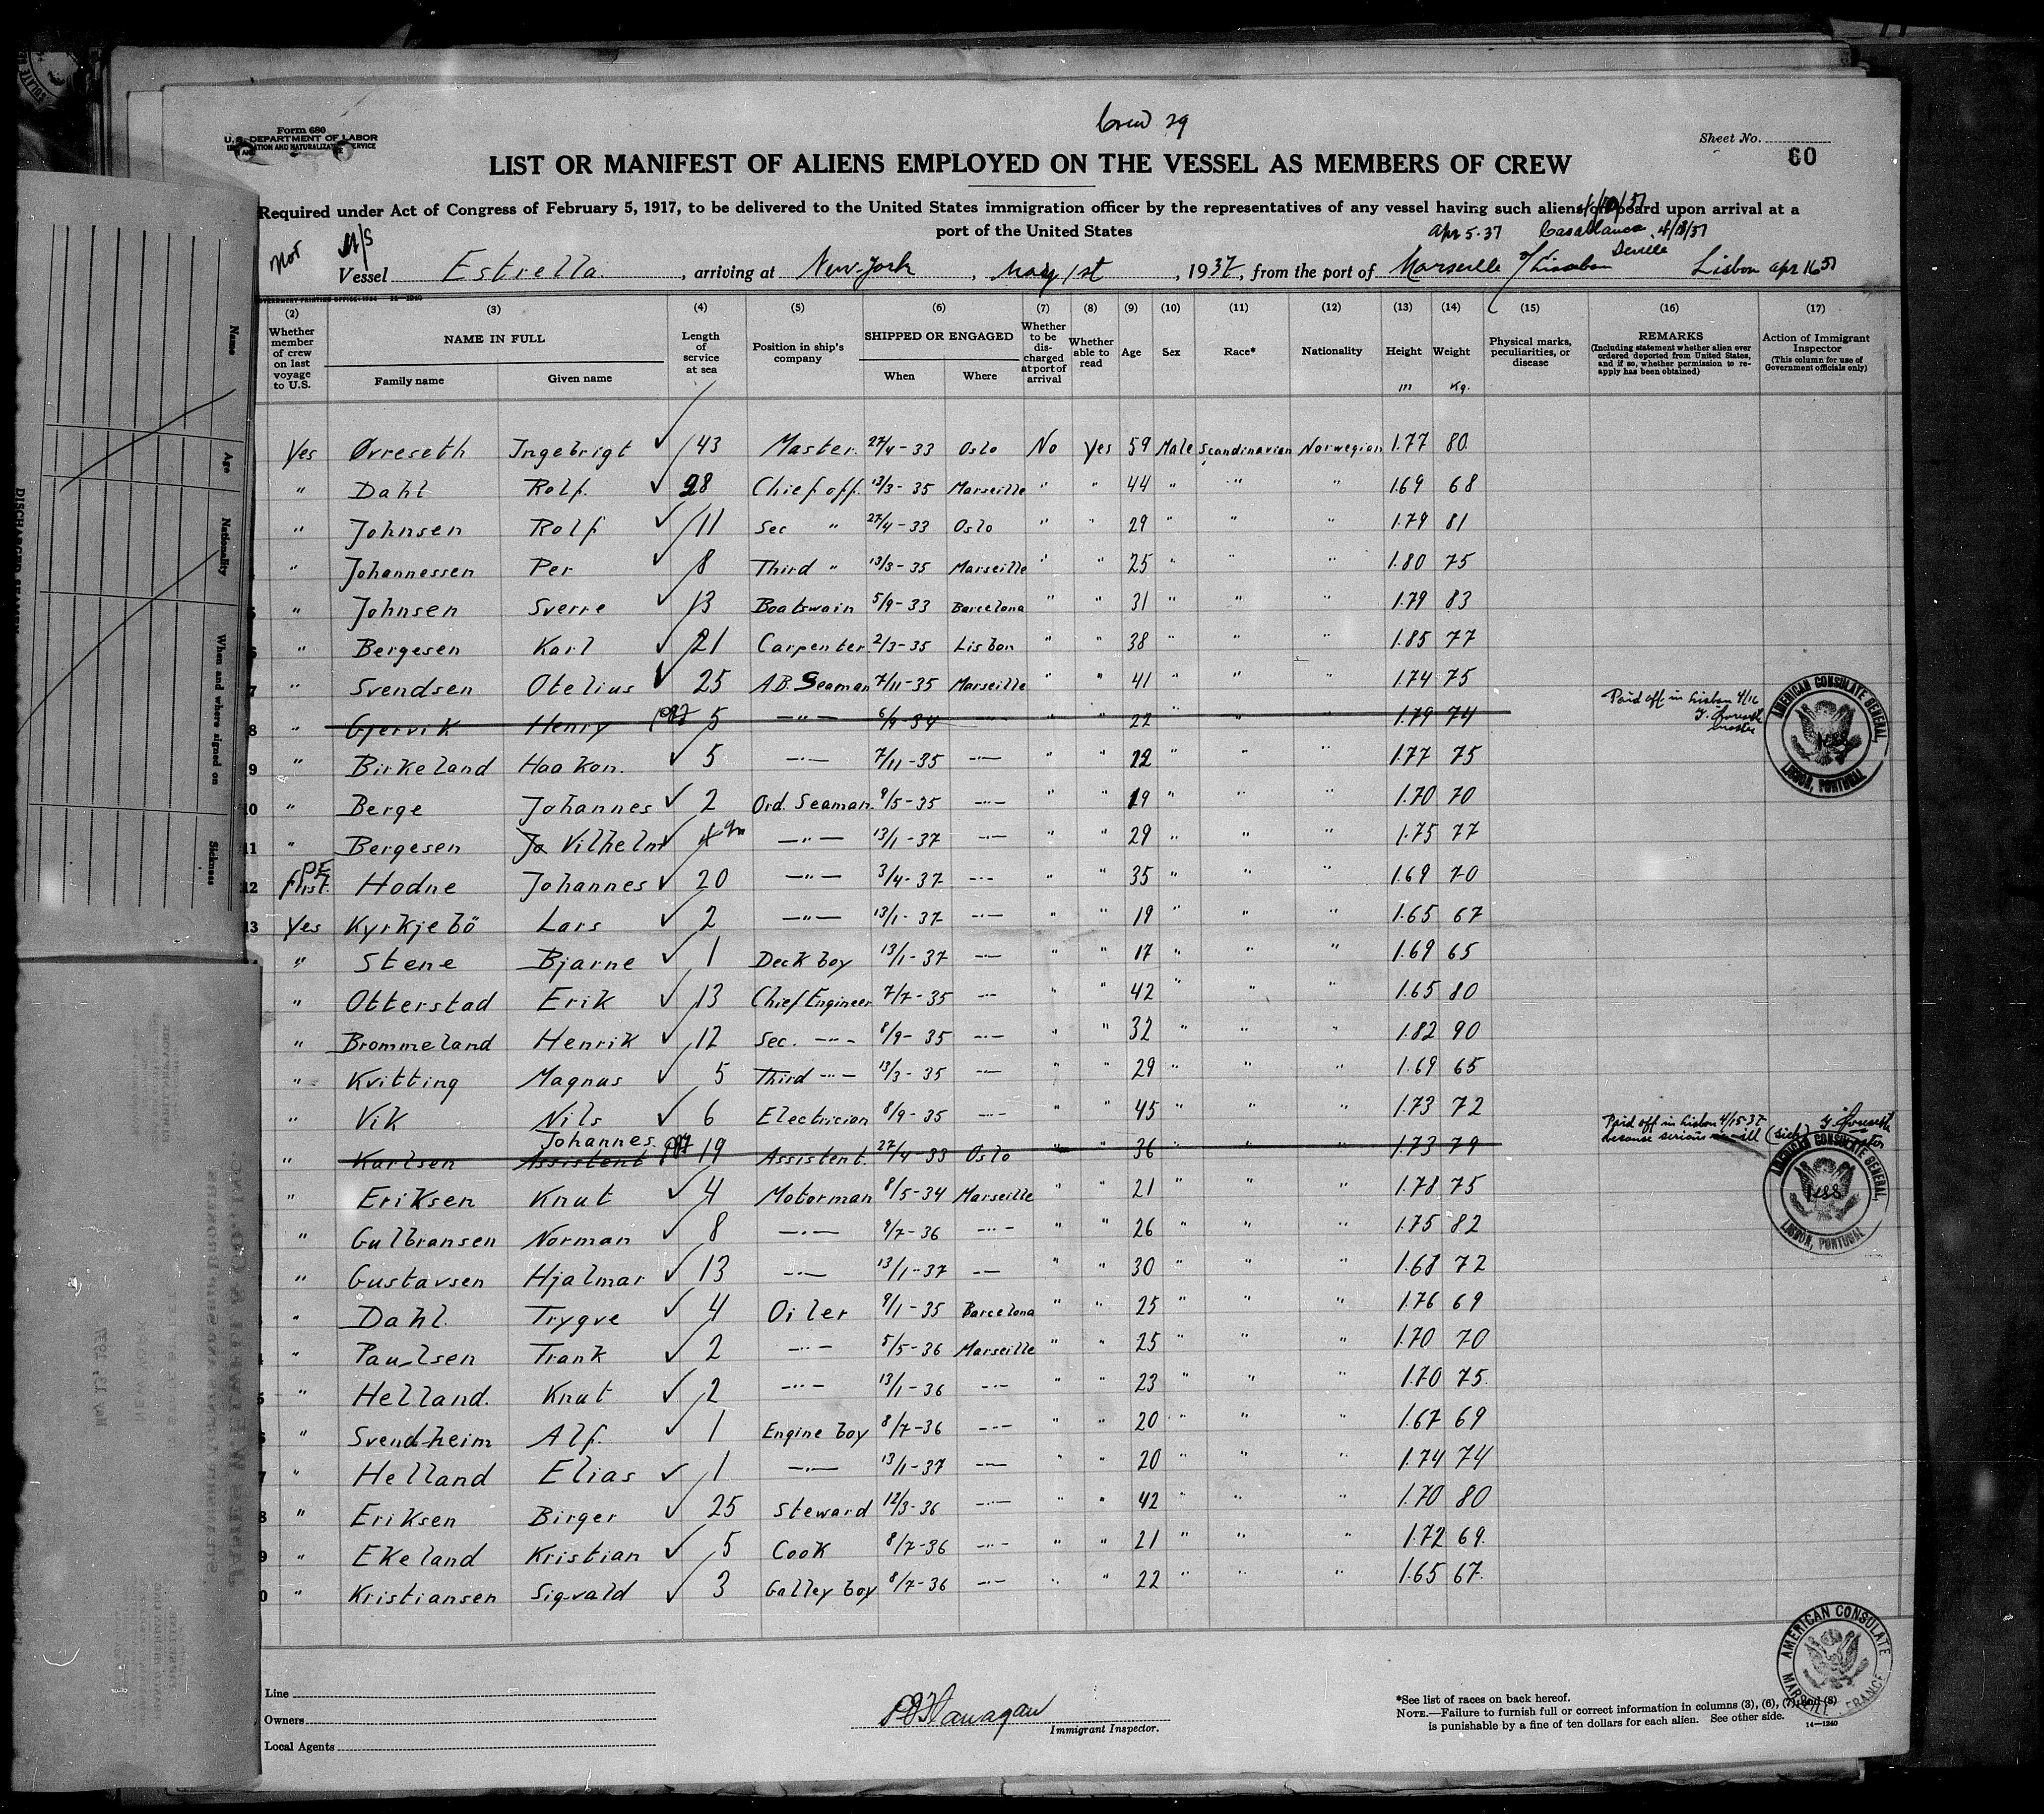 Crew 29
Form 680
U. S. DEPARTMENT OF LABOR
Sheet No.
60
LIST OR MANIFEST OF ALIENS EMPLOYED ON THE VESSEL AS MEMBERS OF CREW
Required under Act of Congress of February 5, 1917, to be delivered to the United States immigration officer by the representatives of any vessel having such aliens on board upon arrival at a
port of the United States
Apr 5-37 Casablanca 4/13/37
Mot M/S Vessel Estrella, arriving at New-York, May 1st, 1937, from the port of Marseille Lissabon Seville Lisbon Apr 16 37
(2) (3) (4) (5) (6) (7) (8) (9) (10) (11) (12) (13) (14) (15) (16) (17)
Whether member of crew on last voyage to U.S.
NAME IN FULL
Family name Given name
Length of service at sea
Position in ship's company
SHIPPED OR ENGAGED
When Where
Whether to be discharged at port of arrival
Whether able to read
Age
Sex
Race*
Nationality
Height m
Weight Kg.
Physical marks, peculiarities, or disease
REMARKS
(Including statement whether alien ever ordered deported from United States, and if so, whether permission to reapply has been obtained)
Action of Immigrant Inspector
(This column for use of Government officials only)
Yes Øvreseth Ingebrigt ✓ 43 Master 27/4-33 Oslo No Yes 59 Male Scandinavian Norwegian 1.77 80
" Dahl Rolf. ✓ 28 Chief off. 13/3-35 Marseille " " 44 " " " 1.69 68
" Johnsen Rolf ✓ 11 Sec " 27/4-33 Oslo " " 29 " " " 1.79 81
" Johannessen Per ✓ 8 Third " 13/3-35 Marseille " " 25 " " " 1.80 75
" Johnsen Sverre ✓ 13 Boatswain 5/9-33 Barcelona " " 31 " " " 1.79 83
" Bergesen Karl ✓ 21 Carpenter 2/3-35 Lisbon " " 38 " " " 1.85 77
7 " Svendsen Otelius ✓ 25 A.B. Seaman 7/11-35 Marseille " " 41 " " " 1.74 75
8 " Gjervik Henry 5 —"— 6/9-34 —"— " " 22 " " " 1.79 74 Paid off in Lisbon 4/16
9 " Birkeland Haakon. ✓ 5 —"— 7/11-35 —"— " " 22 " " " 1.77 75
10 " Berge Johannes ✓ 2 Ord. Seaman 9/5-35 —"— " " 19 " " " 1.70 70
11 " Bergesen Vilhelm ✓ —"— 13/1-37 —"— " " 29 " " " 1.75 77
12 first. Hodne Johannes ✓ 20 —"— 3/4-37 —"— " " 35 " " " 1.69 70
13 Yes Kyrkjebö Lars ✓ 2 —"— 13/1-37 —"— " " 19 " " " 1.65 67
" Stene Bjarne ✓ 1 Deck boy 13/1-37 —"— " " 17 " " " 1.69 65
" Otterstad Erik ✓ 13 Chief Engineer 7/7-35 —"— " " 42 " " " 1.65 80
" Brommeland Henrik ✓ 12 Sec. —"— 8/9-35 —"— " " 32 " " " 1.82 90
" Kvitting Magnus ✓ 5 Third —"— 13/3-35 —"— " " 29 " " " 1.69 65
" Vik Nils ✓ 6 Electrician 8/9-35 —"— " " 45 " " " 1.73 72
" Karlsen Assistent Johannes. 19 Assistent. 27/4-33 Oslo " " 36 " " " 1.73 79 Paid off in Lisbon 4/15-37 because serious ill (sick)
" Eriksen Knut ✓ 4 Motorman 8/5-34 Marseille " " 21 " " " 1.78 75
" Gulbransen Norman ✓ 8 —"— 9/7-36 —"— " " 26 " " " 1.75 82
" Gustavsen Hjalmar ✓ 13 —"— 13/1-37 —"— " " 30 " " " 1.68 72
" Dahl. Trygve ✓ 4 Oiler 9/1-35 Barcelona " " 25 " " " 1.76 69
" Paulsen Trank ✓ 2 —"— 5/5-36 Marseille " " 25 " " " 1.70 70
" Helland. Knut ✓ 2 —"— 13/1-36 —"— " " 23 " " " 1.70 75.
" Svendheim Alf. ✓ 1 Engine boy 8/7-36 —"— " " 20 " " " 1.67 69
" Helland Elias ✓ 1 —"— 13/1-37 —"— " " 20 " " " 1.74 74
8 " Eriksen Birger ✓ 25 Steward 12/3-36 —"— " " 42 " " " 1.70 80
9 " Ekeland Kristian ✓ 5 Cook 8/7-36 —"— " " 21 " " " 1.72 69.
0 " Kristiansen Sigvald ✓ 3 Galley boy 8/7-36 —"— " " 22 " " " 1.65 67.
AMERICAN CONSULATE GENERAL, LISBON, PORTUGAL
AMERICAN CONSULATE GENERAL, LISBON, PORTUGAL
AMERICAN CONSULATE MARSEILLE FRANCE
Line
Owners
Local Agents
Flanagan
Immigrant Inspector.
*See list of races on back hereof.
NOTE.—Failure to furnish full or correct information in columns (3), (6), (7) and (8)
is punishable by a fine of ten dollars for each alien. See other side.
14—1240
Name
Age
Nationality
When and where signed on
Sickness